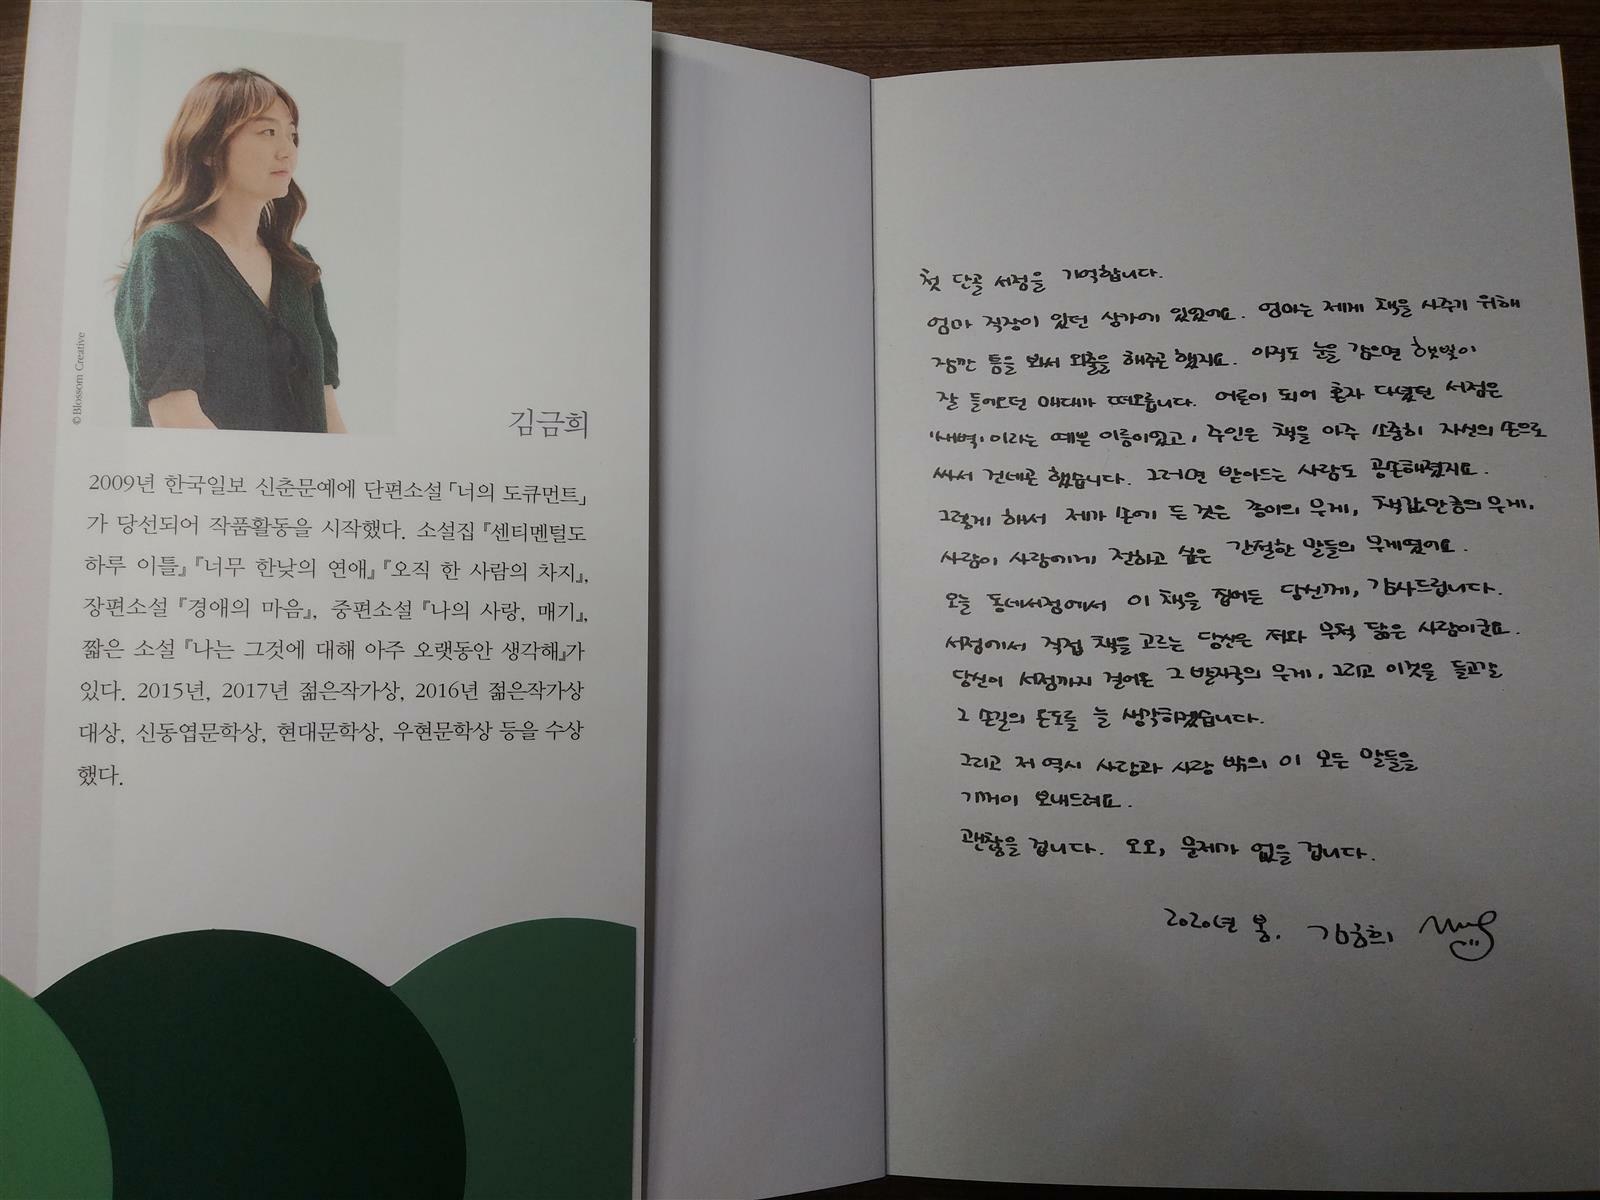 ©Blossom Creative
김금희
2009년 한국일보 신춘문예에 단편소설 「너의 도큐먼트」
가 당선되어 작품활동을 시작했다. 소설집 『센티멘털도
하루 이틀』 『너무 한낮의 연애』 『오직 한 사람의 차지』,
장편소설 『경애의 마음』, 중편소설 『나의 사랑, 매기』,
짧은 소설 『나는 그것에 대해 아주 오랫동안 생각해』가
있다. 2015년, 2017년 젊은작가상, 2016년 젊은작가상
대상, 신동엽문학상, 현대문학상, 우현문학상 등을 수상
했다.
첫 단골 서점을 기억합니다.
엄마 직장이 있던 상가에 있었어요. 엄마는 제게 책을 사주기 위해
잠깐 틈을 봐서 외출을 해주곤 했지요. 아직도 눈을 감으면 햇빛이
잘 들어오던 매대가 떠오릅니다. 어른이 되어 혼자 다녔던 서점은
'새벽'이라는 예쁜 이름이었고, 주인은 책을 아주 소중히 자신의 손으로
싸서 건네곤 했습니다. 그러면 받아드는 사람도 공손해졌지요.
그렇게 해서 제가 손에 든 것은 종이의 무게, 책값만큼의 무게,
사람이 사람에게 전하고 싶은 간절한 말들의 무게였어요.
오늘 동네서점에서 이 책을 집어든 당신께, 감사드립니다.
서점에서 직접 책을 고르는 당신은 저와 무척 닮은 사람이군요.
당신이 서점까지 걸어온 그 발자국의 무게, 그리고 이것을 들고갈
그 손길의 온도를 늘 생각하겠습니다.
그리고 저 역시 사랑과 사랑 밖의 이 모든 말들을
기꺼이 보내드려요.
괜찮을 겁니다. 오오, 문제가 없을 겁니다.
2020년 봄. 김금희